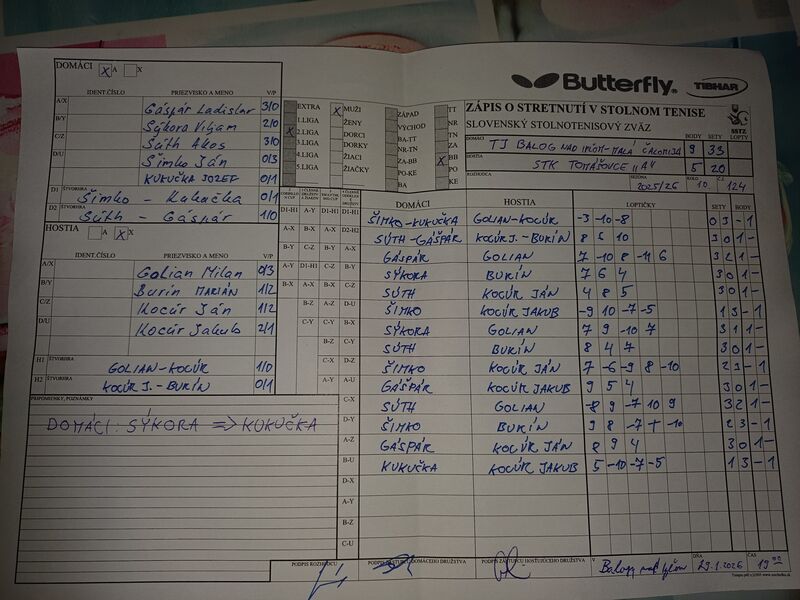 Butterfly
TIBHAR
ZÁPIS O STRETNUTÍ V STOLNOM TENISE
SLOVENSKÝ STOLNOTENISOVÝ ZVÄZ
SSTZ
DOMÁCI BODY SETY LOPTY
TJ BALOG NAD IPĽOM-MALÁ ČALOMIJA 9 33
HOSTIA
STK TOMÁŠOVCE "A" 5 20
ROZHODCA SEZÓNA 2025/26 KOLO 10. Č.S. 124
DOMÁCI X A X
IDENT.ČÍSLO PRIEZVISKO A MENO V/P
A/X Gáspár Ladislav 3/0
B/Y Sýkora Viliam 2/0
C/Z Súth Akos 3/0
D/U Šimko Ján 0/3
KUKUČKA JOZEF 0/1
D1 ŠTVORHRA Šimko - Kukučka 0/1
D2 ŠTVORHRA Súth - Gáspár 1/0
HOSTIA A X X
IDENT.ČÍSLO PRIEZVISKO A MENO V/P
A/X Golian Milan 0/3
B/Y Burín MARIÁN 1/2
C/Z Kocúr Ján 1/2
D/U Kocúr Jakub 2/1
H1 ŠTVORHRA GOLIAN-KOCÚR 1/0
H2 ŠTVORHRA KOCÚR J.- BURÍN 0/1
PRIPOMIENKY, POZNÁMKY
DOMÁCI: SÝKORA => KUKUČKA
EXTRA X MUŽI ZÁPAD TT
1.LIGA ŽENY VÝCHOD TN
X 2.LIGA DORCI BA-TT NR
3.LIGA DORKY TN-NR ZA
4.LIGA ŽIACI ZA-BB X BB
5.LIGA ŽIAČKY PO-KE PO
BA KE
DOMÁCI HOSTIA LOPTIČKY SETY BODY
D1-H1 ŠIMKO-KUKUČKA GOLIAN-KOCÚR -3 -10 -8 0 3 - 1
D2-H2 SÚTH-GÁŠPÁR KOCÚR J.- BURÍN 8 6 10 3 0 1 -
A-X GÁSPÁR GOLIAN 7 -10 8 -11 6 3 2 1 -
B-Y SÝKORA BURÍN 7 6 4 3 0 1 -
C-Z SÚTH KOCÚR JÁN 4 8 5 3 0 1 -
D-U ŠIMKO KOCÚR JAKUB -9 10 -7 -5 1 3 - 1
B-X SÝKORA GOLIAN 7 9 -10 7 3 1 1 -
C-Y SÚTH BURÍN 8 4 7 3 0 1 -
D-Z ŠIMKO KOCÚR JÁN 7 -6 -9 8 -10 2 3 - 1
A-U GÁŠPÁR KOCÚR JAKUB 9 5 4 3 0 1 -
C-X SÚTH GOLIAN -8 9 -7 10 9 3 2 1 -
D-Y ŠIMKO BURÍN 9 8 -7 -10 2 3 - 1
A-Z GÁSPÁR KOCÚR JÁN 8 9 4 3 0 1 -
B-U KUKUČKA KOCÚR JAKUB 5 -10 -7 -5 1 3 - 1
D-X
A-Y
B-Z
C-U
PODPIS ROZHODCU PODPIS ZÁSTUPCU DOMÁCEHO DRUŽSTVA PODPIS ZÁSTUPCU HOSŤUJÚCEHO DRUŽSTVA V Balogu nad Ipľom DŇA 29.1.2026 ČAS 19 00